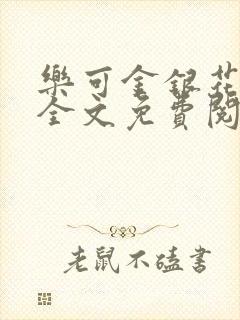 樂可金銀花
全文免費閱
老鼠不磕書